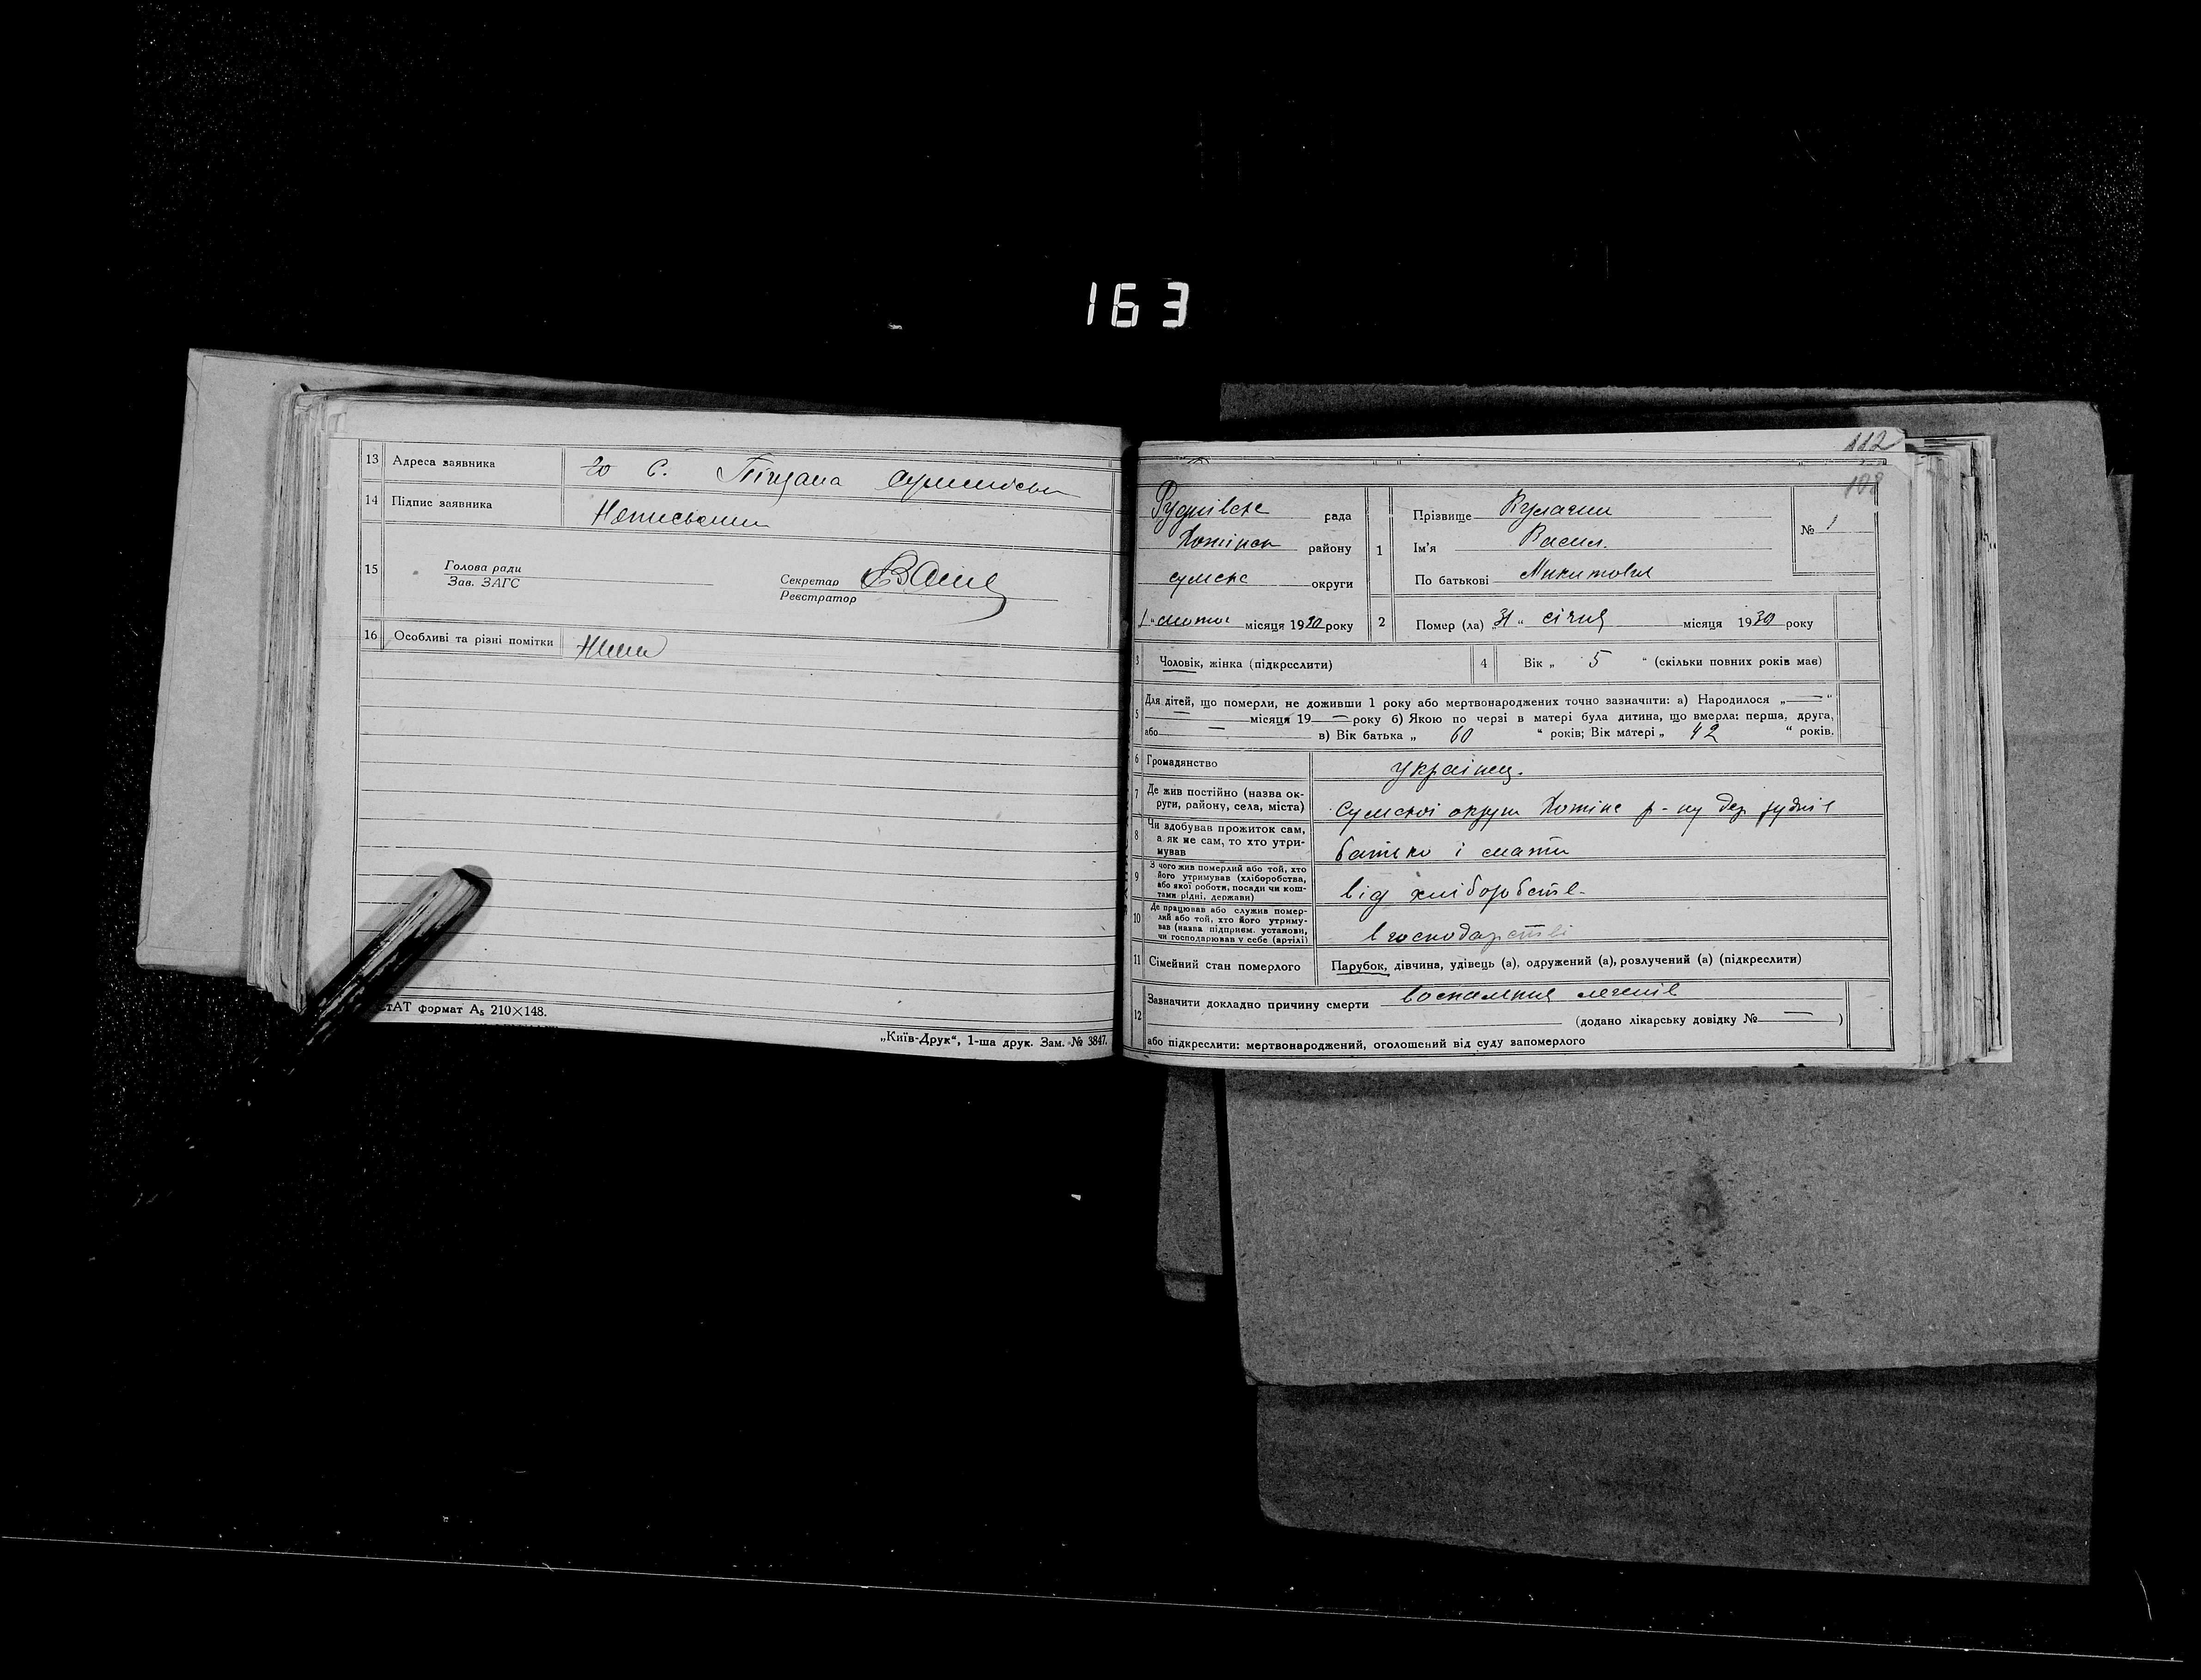 163
13 Адреса заявника
с.
14 Підпис заявника
15 Голова ради
Зав. ЗАГС
Секретар
Реєстратор
16 Особливі та різні помітки
формат А5 210×148.
„Київ-Друк“, 1-ша друк. Зам. № 3847.
112
108
рада
району
сумськ округи
1 місяця 1930 року
1
Прізвище
Ім'я Васил.
По батькові Микитович
№ 1
2 Помер (ла) „31“ січня місяця 1930 року
3 Чоловік, жінка (підкреслити)
4 Вік „ 5 “ (скільки повних років має)
5 Для дітей, що померли, не доживши 1 року або мертвонароджених точно зазначити: а) Народилося „—“
— місяця 19 — року б) Якою по черзі в матері була дитина, що вмерла: перша, друга,
або — в) Вік батька „ 60 “ років; Вік матері „ 42 “ років.
6 Громадянство українец.
7 Де жив постійно (назва округи, району, села, міста)
Сумської округи Хотінс р-ну дер
8 Чи здобував прожиток сам,
а як не сам, то хто утри-
мував
батько і мати
9 З чого жив померлий або той, хто
його утримував (хліборобства,
або якої роботи, посади чи кош-
тами рідні, держави)
від хліборобств-
10 Де працював або служив помер-
лий або той, хто його утриму-
вав (назва підприєм. установи,
чи господарював у себе (артілі)
в господарстві
11 Сімейний стан померлого Парубок, дівчина, удівець (а), одружений (а), розлучений (а) (підкреслити)
12 Зазначити докладно причину смерти воспаления легенів
(додано лікарську довідку № — )
або підкреслити: мертвонароджений, оголошений від суду запомерлого